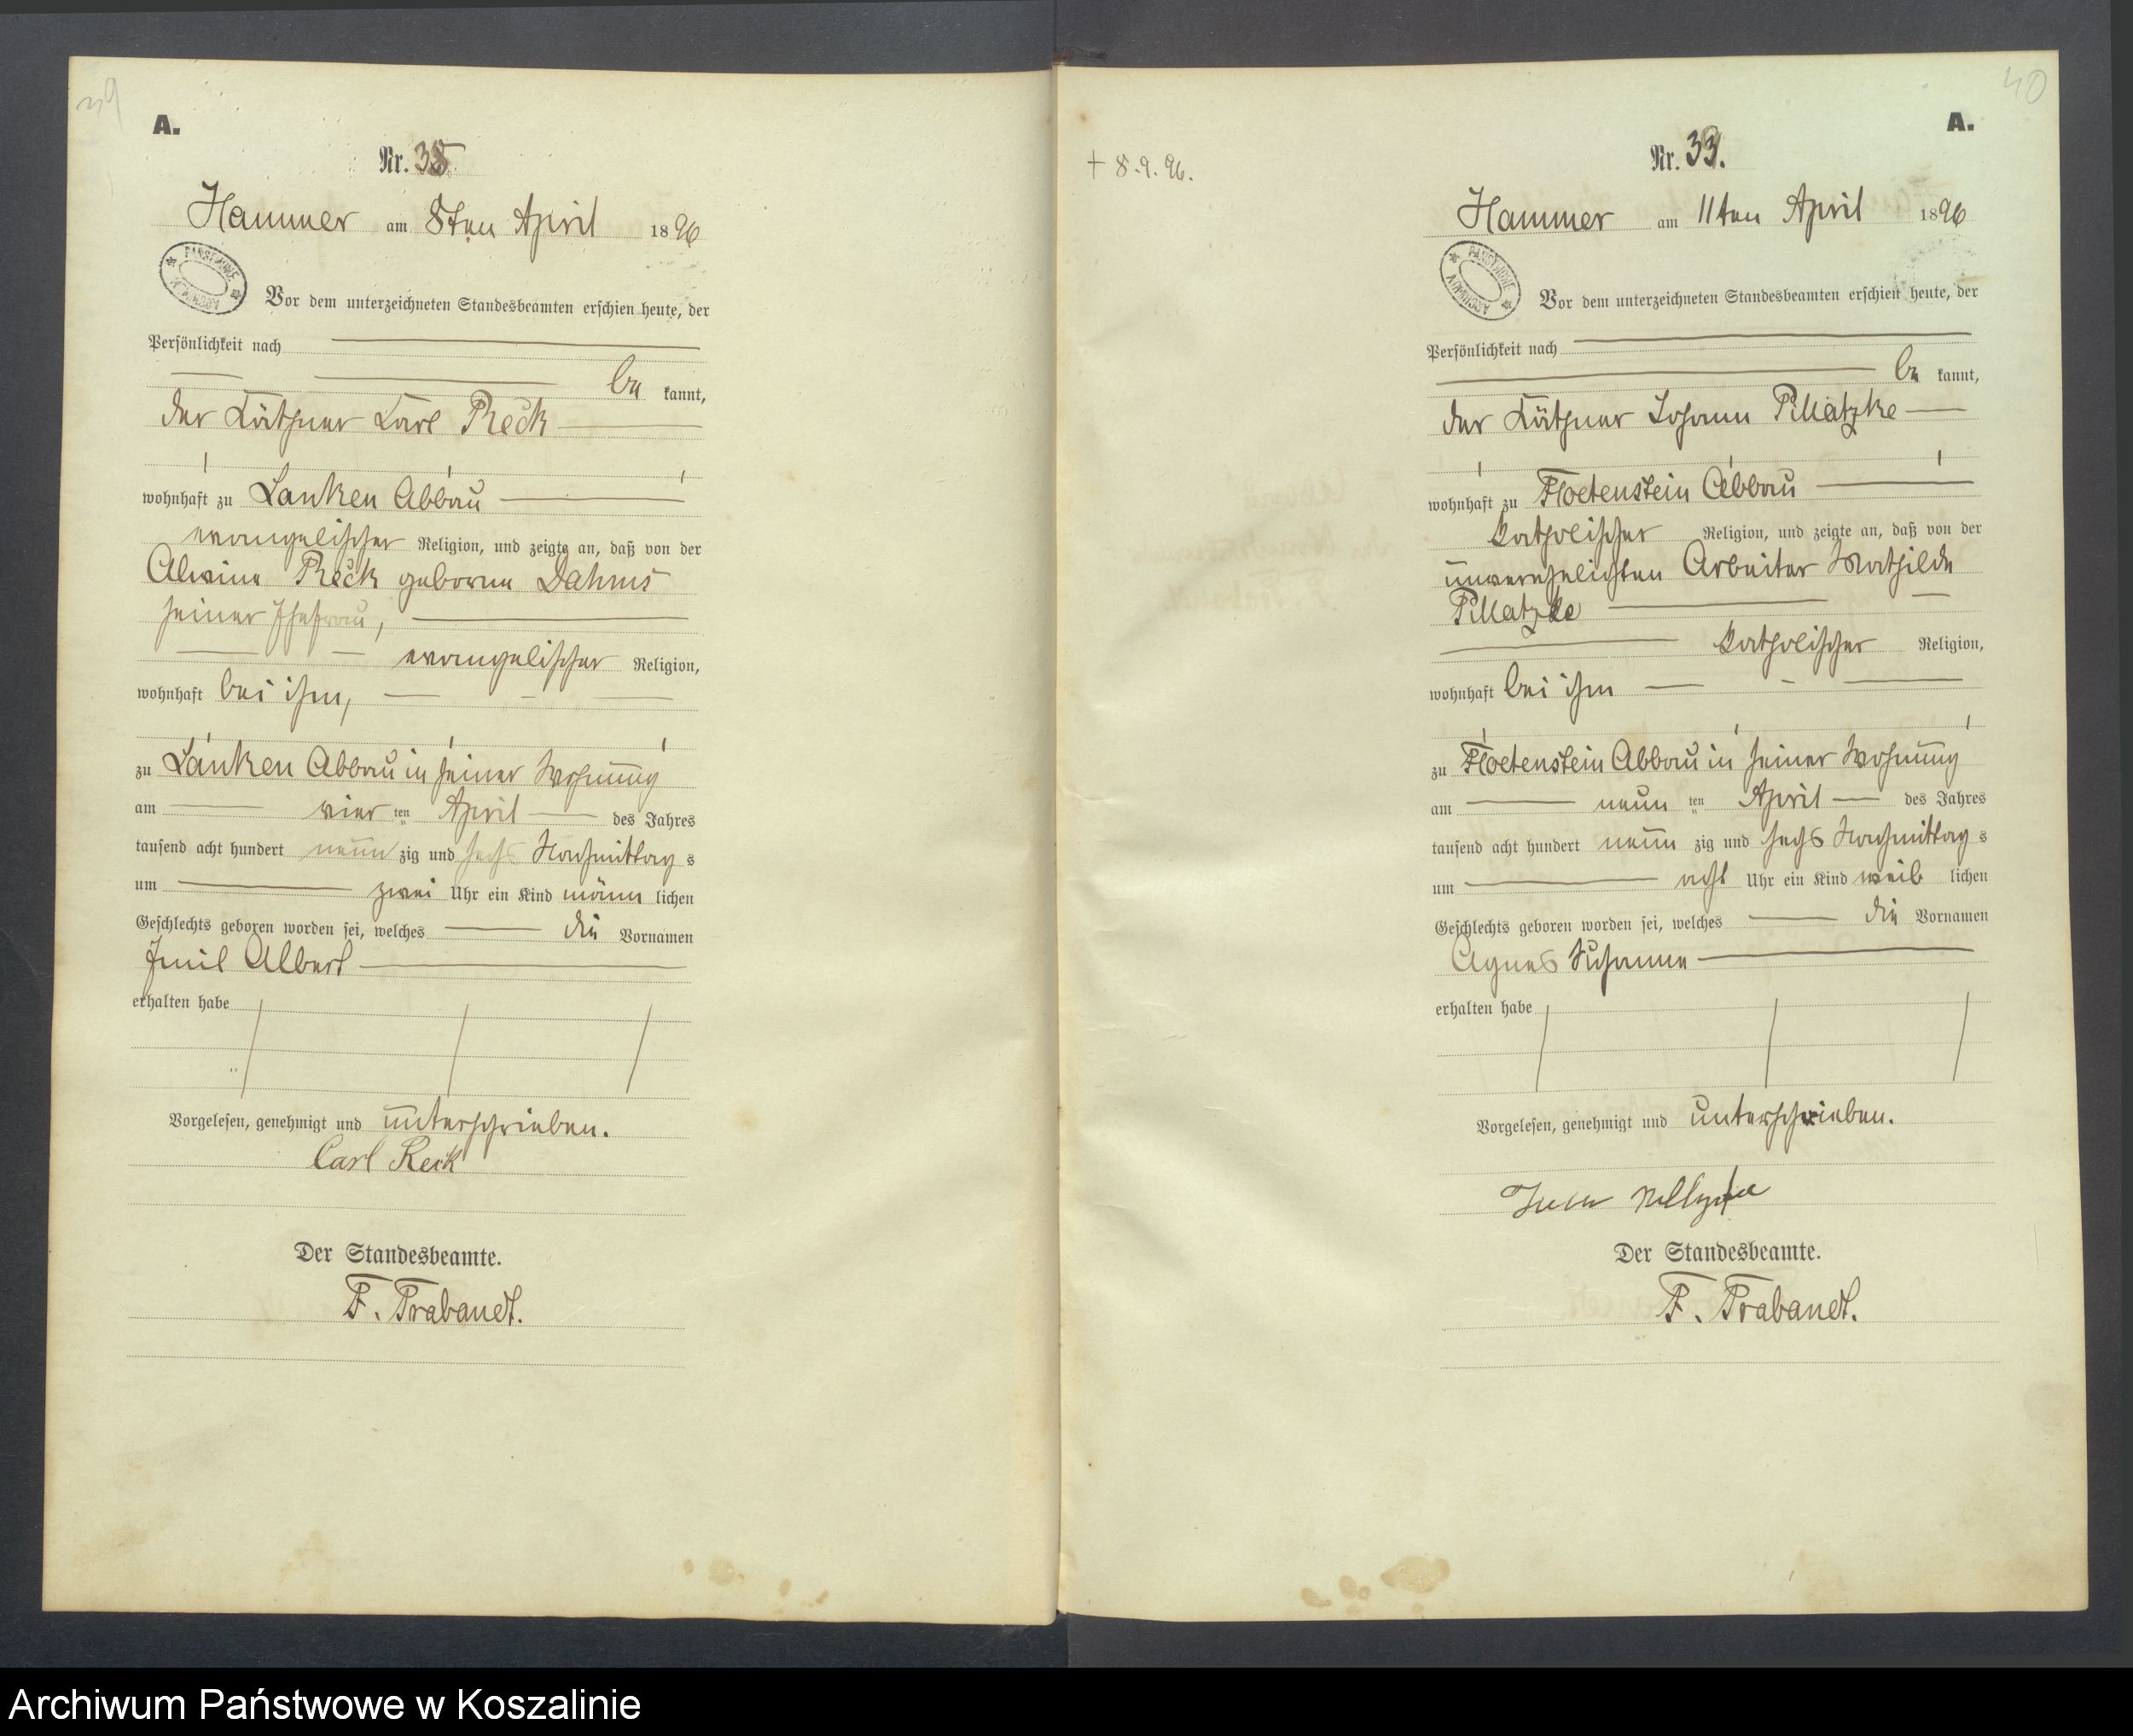 39
A.
Nr. 38.
Hammer am 8ten April 1896
Vor dem unterzeichneten Standesbeamten erschien heute, der
Persönlichkeit nach
be kannt,
der Käthner Karl Reck
wohnhaft zu Lanken Abbau
evangelischer Religion, und zeigte an, daß von der
Alwine Reck geborene Dahms
seiner Ehefrau,
evangelischer Religion,
wohnhaft bei ihm,
zu Lanken Abbau in seiner Wohnung
am vier ten April des Jahres
tausend acht hundert neun zig und sechs Nachmittag s
um zwei Uhr ein Kind männ lichen
Geschlechts geboren worden sei, welches die Vornamen
Emil Albert
erhalten habe
Vorgelesen, genehmigt und unterschrieben.
Carl Reck
Der Standesbeamte.
F. Trabandt.
40
A.
† 8.9.96.
Nr. 39.
Hammer am 11ten April 1896
PAŃSTWOWE ARCHIWUM
Vor dem unterzeichneten Standesbeamten erschien heute, der
Persönlichkeit nach
be kannt,
der Käthner Johann Pillatzke
wohnhaft zu Floetenstein Abbau
katholischer Religion, und zeigte an, daß von der
unverehelichten Arbeiter Mathilde
Pillatzke
katholischer Religion,
wohnhaft bei ihm
zu Floetenstein Abbau in seiner Wohnung
am neun ten April des Jahres
tausend acht hundert neun zig und sechs Nachmittag s
um acht Uhr ein Kind weib lichen
Geschlechts geboren worden sei, welches die Vornamen
Agnes Susanne
erhalten habe
Vorgelesen, genehmigt und unterschrieben.
Der Standesbeamte.
F. Trabandt.
Archiwum Państwowe w Koszalinie